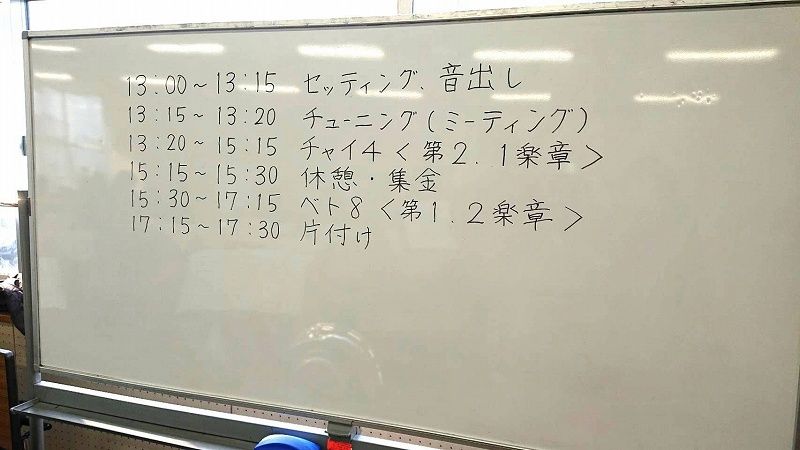 13:00~13:15 セッティング、音出し
13:15~13:20 チューニング(ミーティング)
13:20~15:15 チャイ4<第2.1楽章>
15:15~15:30 休憩・集金
15:30~17:15 ベト8<第1.2楽章>
17:15~17:30 片付け